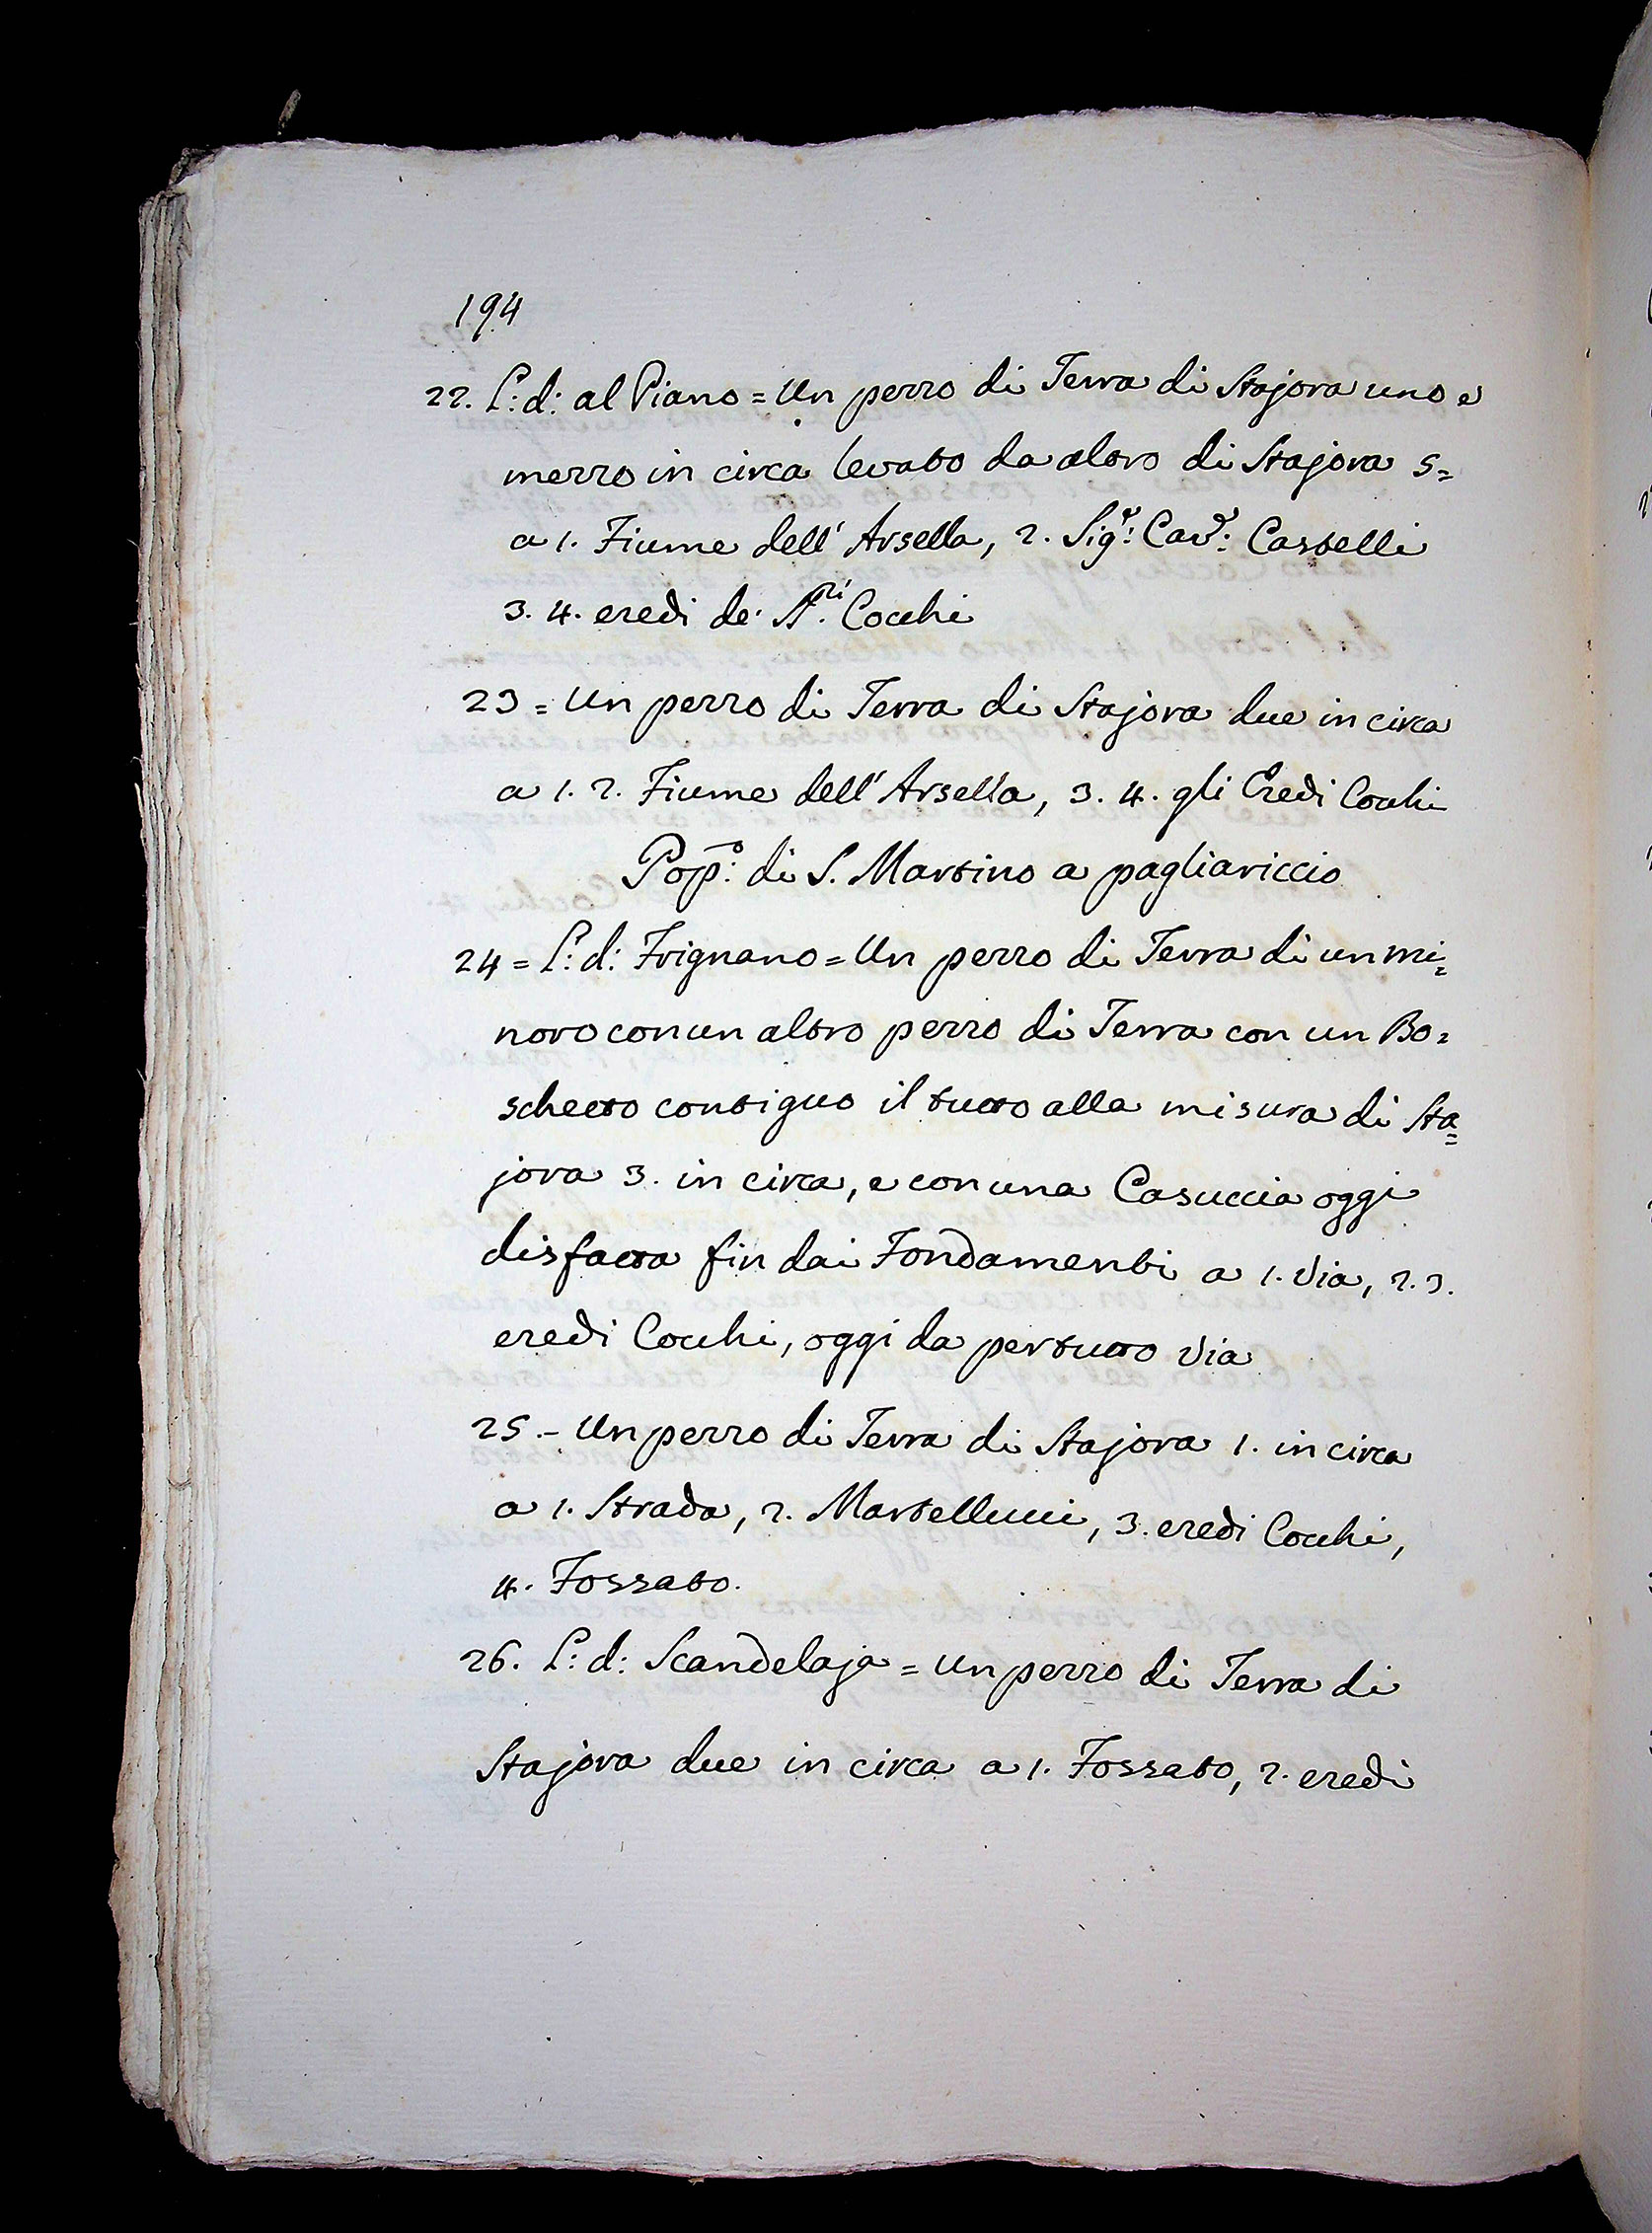 194
22. L: d: al Piano = Un pezzo di Terra di Stajora uno e
mezzo in circa levato da altro di Stajora 5=
a 1. Fiume dell' Arsella, 2. Sig.r: Cav.r: Castelli
3. 4. eredi de' SS.ri Cocchi
23 = Un pezzo di Terra di Stajora due in circa
a 1. 2. Fiume dell' Arsella, 3. 4. gli Eredi Cocchi
Pop.o: di S. Martino a pagliariccio
24 = L: d: Frignano = Un pezzo di Terra di un mi=
noro con un altro pezzo di Terra con un Bo=
schetto contiguo il tutto alla misura di Sta=
jora 3. in circa, e con una Casuccia oggi
disfatta fin dai Fondamenti a 1. Via, 2. 3.
eredi Cocchi, oggi da pertutto Via
25. - Un pezzo di Terra di Stajora 1. in circa
a 1. Strada, 2. Martellucci, 3. eredi Cocchi,
4. Fossato.
26. L: d: Scandelaja = Un pezzo di Terra di
Stajora due in circa a 1. Fossato, 2. eredi